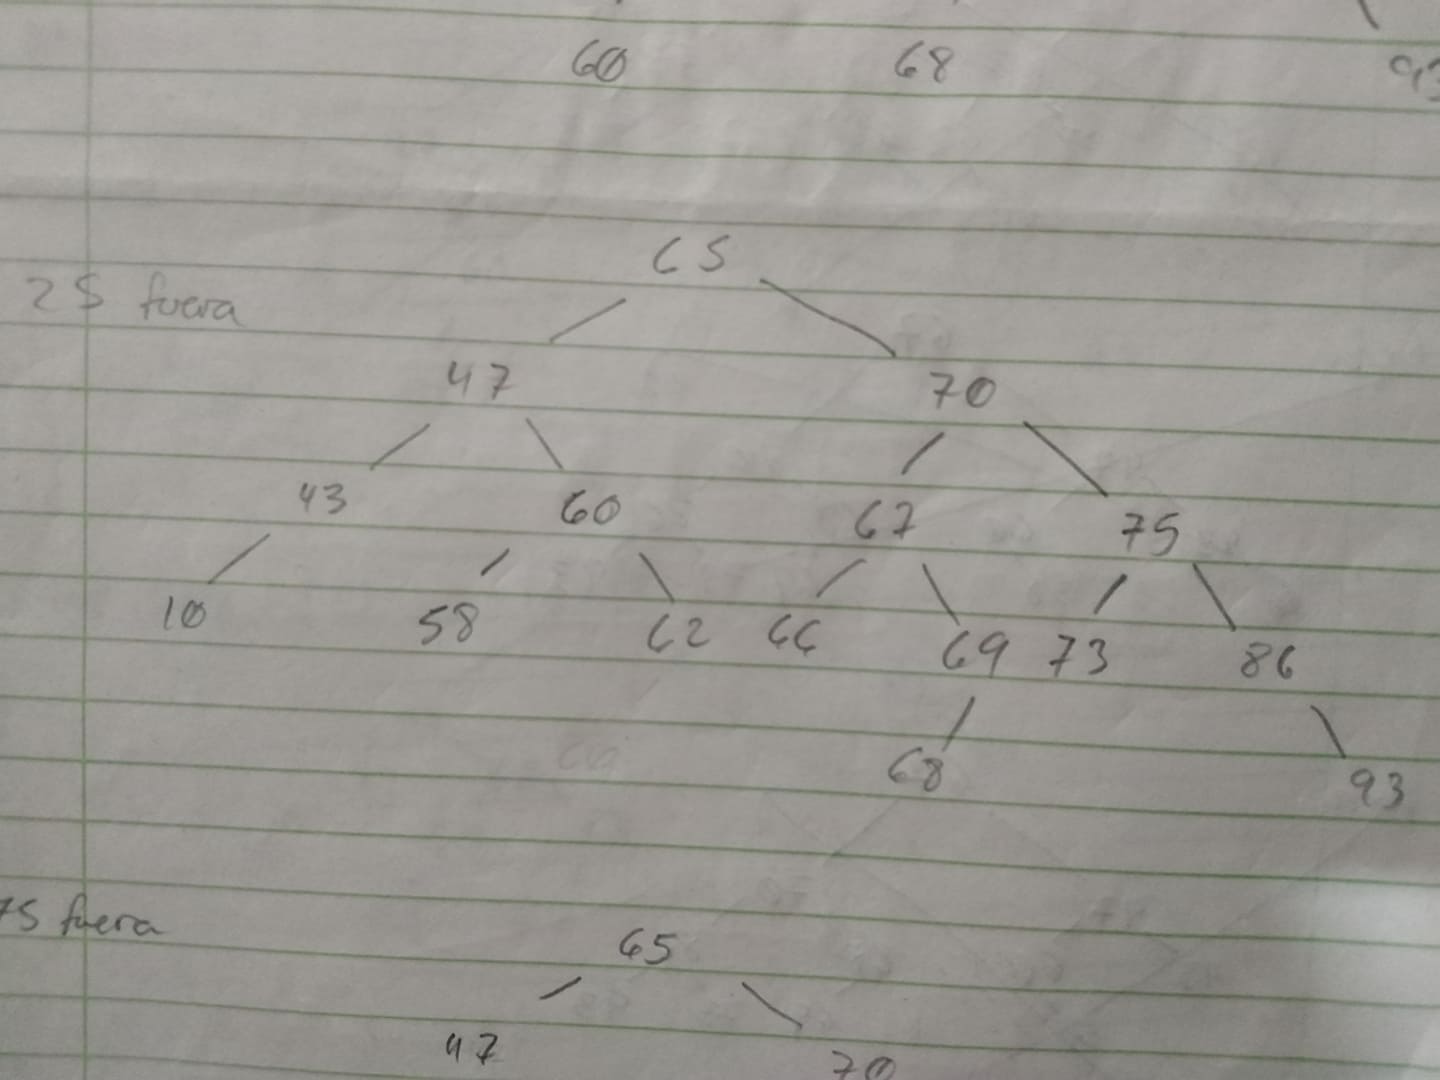 60 68
65
25 fuera
47 70
43 60 67 75
10 58 62 66 69 73 86
68 93
75 fuera
65
47 70